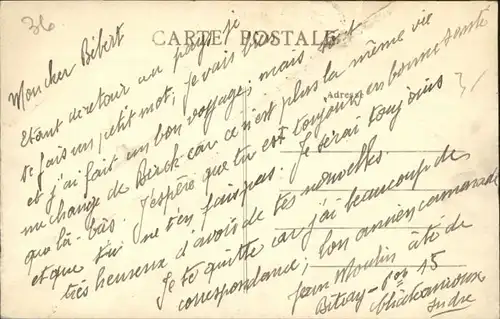 36
CARTE POSTALE
Adresse
Mon cher Bébert
Etant de retour au pays je
te fais un petit mot; je vais bien
et j'ai fait un bon voyage; mais tout
me change de Berck car ce n'est plus la même vie
que là-bas. J'espère que tu est toujours en bonne santé
et que tu ne t'en fais pas. Je serai toujours
très heureux d'avoir de tes nouvelles.
Je te quitte car j'ai beaucoup de
correspondance; ton ancien camarade
Jean Moulin
15
Châteauroux
Indre